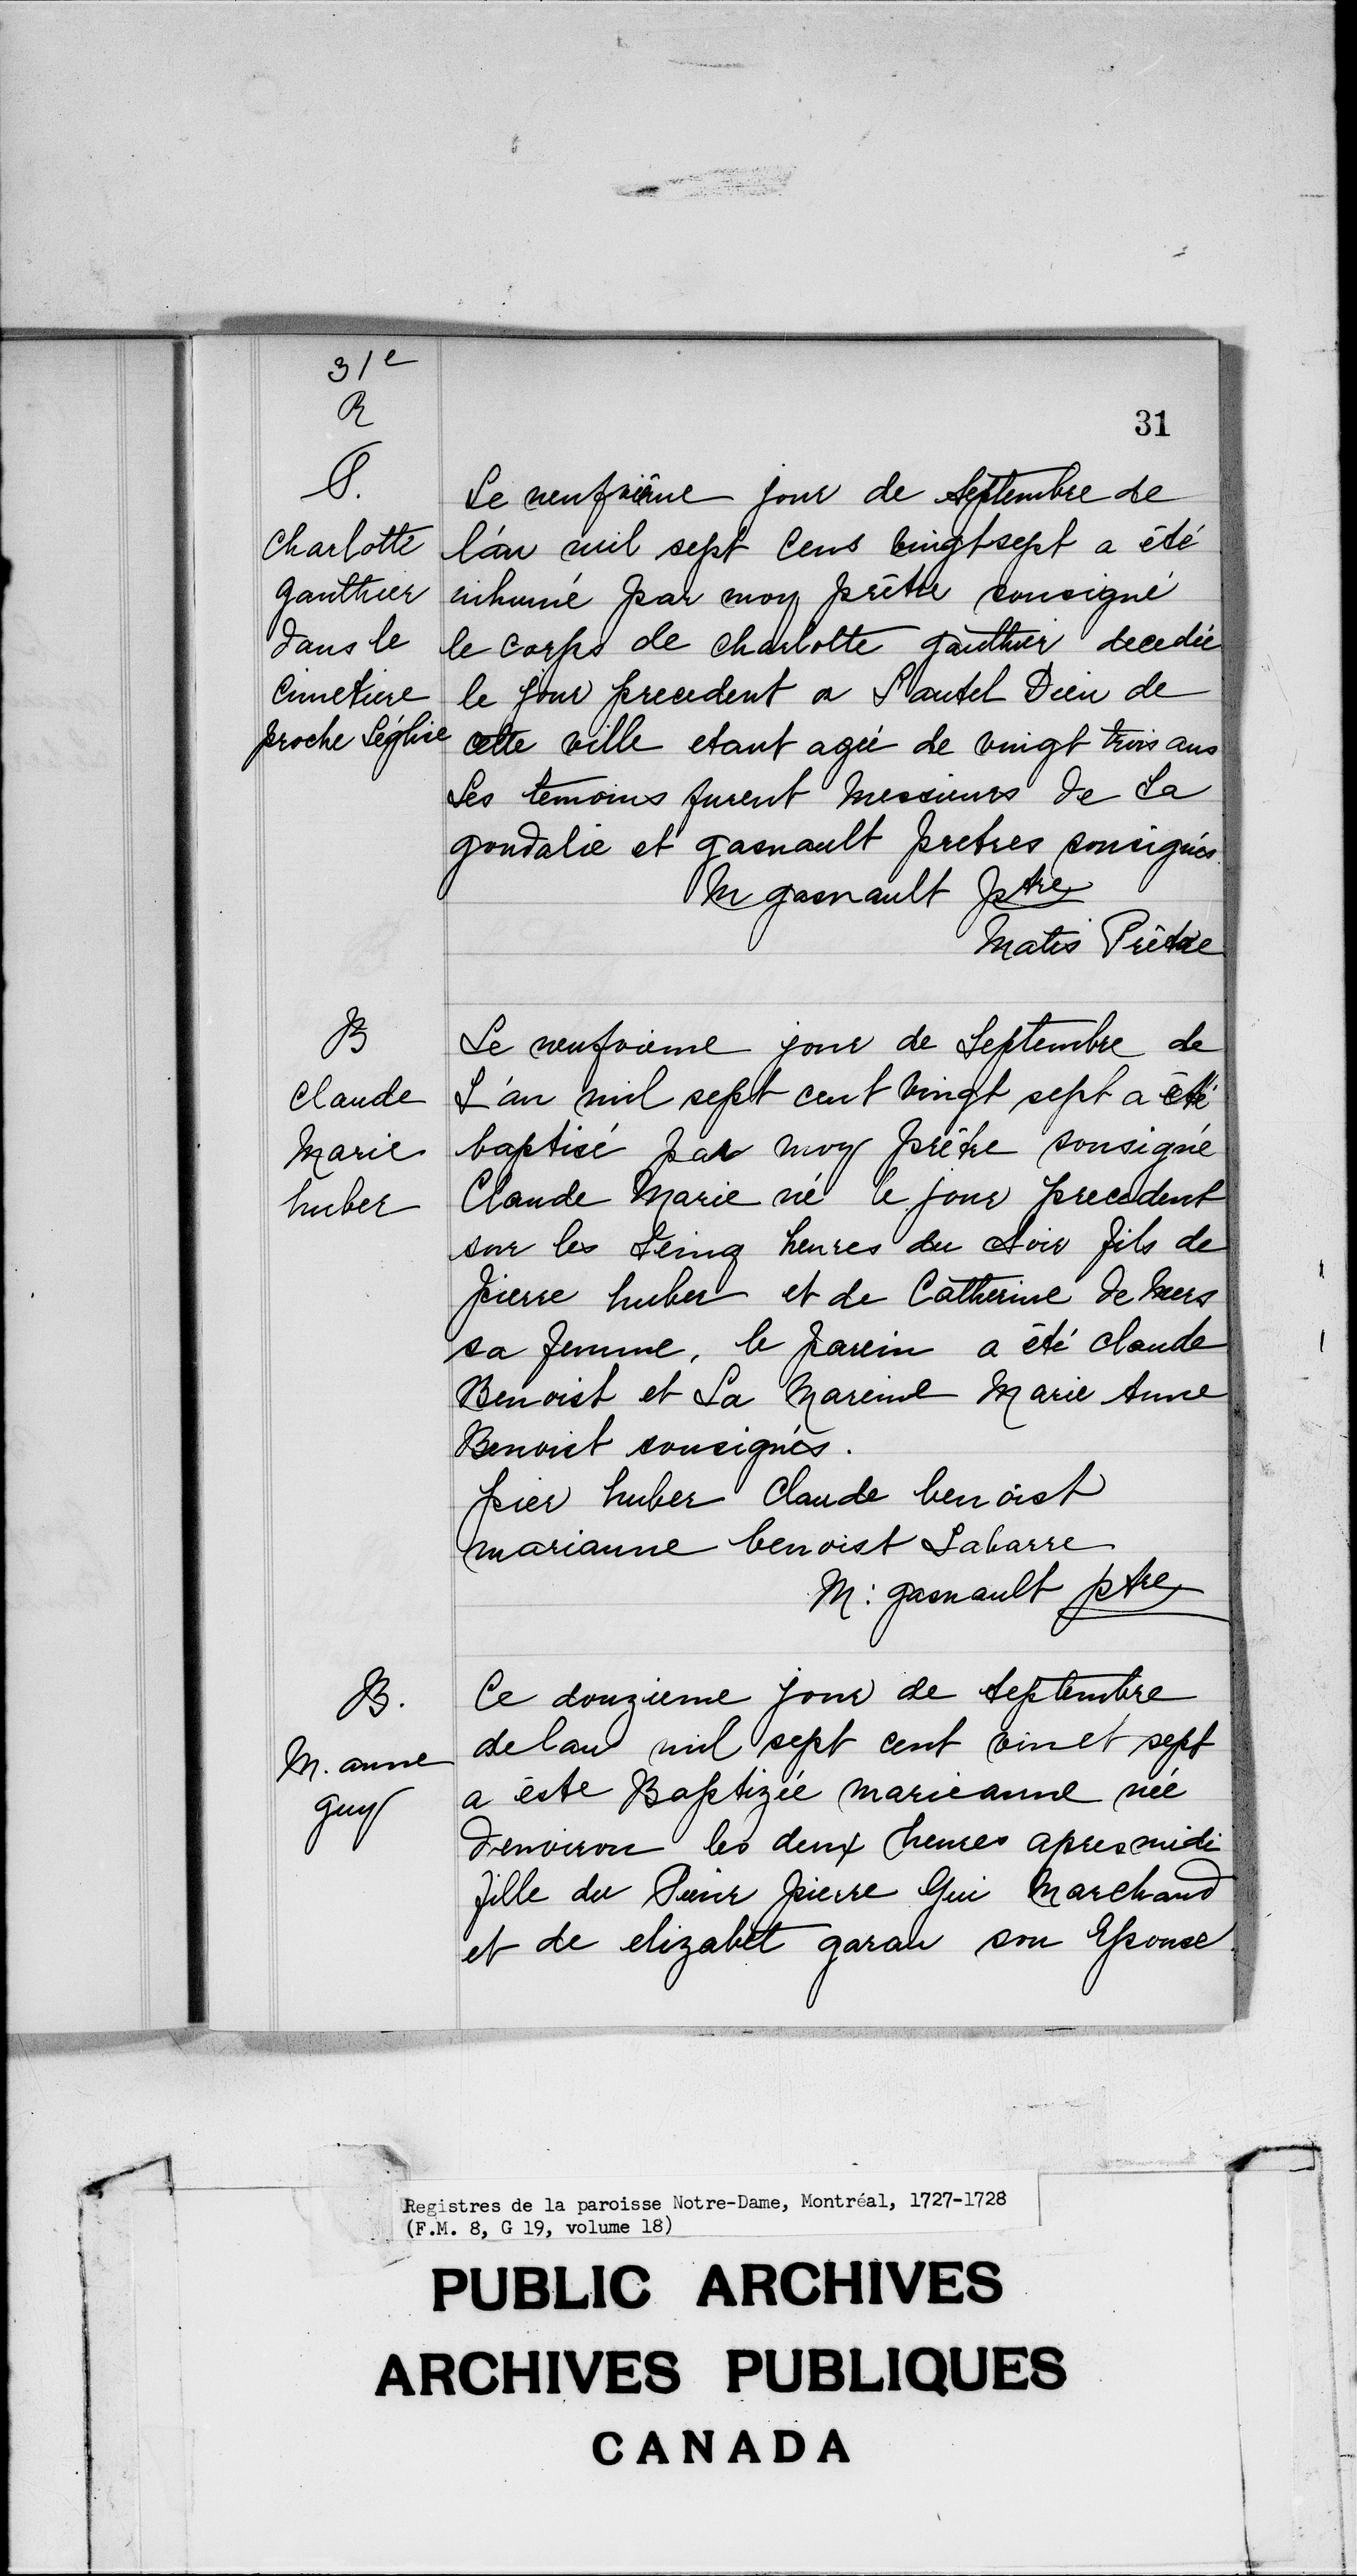 31e
R
31
S.
Charlotte
gauthier
dans le
Cimetiere
proche L'église
Le neufviême jour de Septembre de
l'an mil sept Cens vingt sept a été
inhumé par moy prêtre sousigné
le corps de charlotte gauthier decedée
le jour precedent a L'autel Dieu de
cette ville etant agée de vingt trois ans
Les temoins furent Messieurs de La
goudalie et gasnault pretres sousignés.
M gasnault ptre
Matis Prêtre
B
Claude
Marie
huber
Le neufvieme jour de Septembre de
L'an mil sept cent vingt sept a été
baptisé par moy prêtre sousigné
Claude Marie né le jour precedent
sur les Cinq heures du Soir fils de
pierre huber et de Catherine de Mers
sa femme, le parein a été claude
Benoist et La Mareine Marie Anne
Benoist sousignés.
pier huber Claude benoist
marianne benoist Labarre
M: gasnault ptre
B.
M. anne
guy
Ce douzieme jour de Septembre
de lan mil sept cent vinct sept
a êste Baptizée marieanne née
denviron les deux heures apres midi
fille du Sieur pierre Gui Marchand
et de elizabet garau son Epouse
Registres de la paroisse Notre-Dame, Montréal, 1727-1728
(F.M. 8, G 19, volume 18)
PUBLIC ARCHIVES
ARCHIVES PUBLIQUES
CANADA